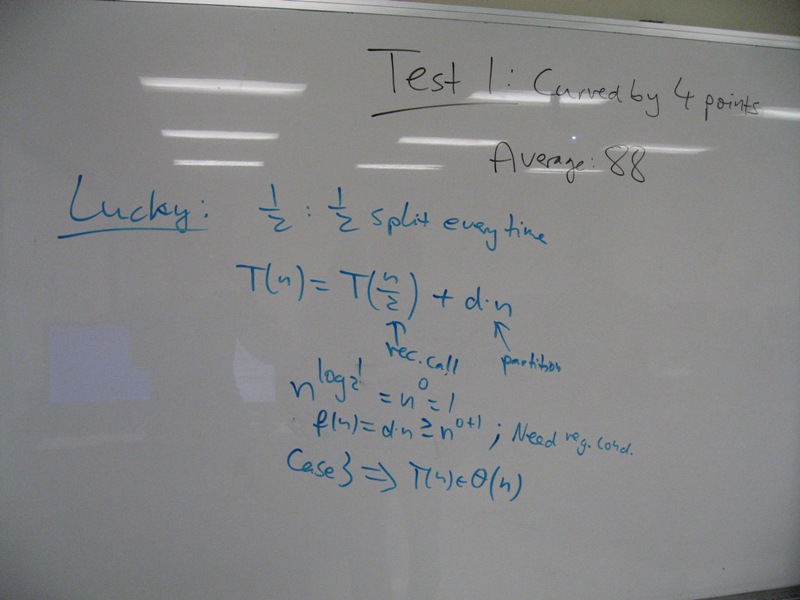 Test 1: Curved by 4 points
Average: 88
Lucky: 1/2 : 1/2 split every time
T(n) = T(n/2) + d·n
rec. call
partition
n^log₂1 = n^0 = 1
f(n) = d·n ≥ n^0+1 ; Need reg. cond.
Case 3 ⇒ T(n) ∈ Θ(n)